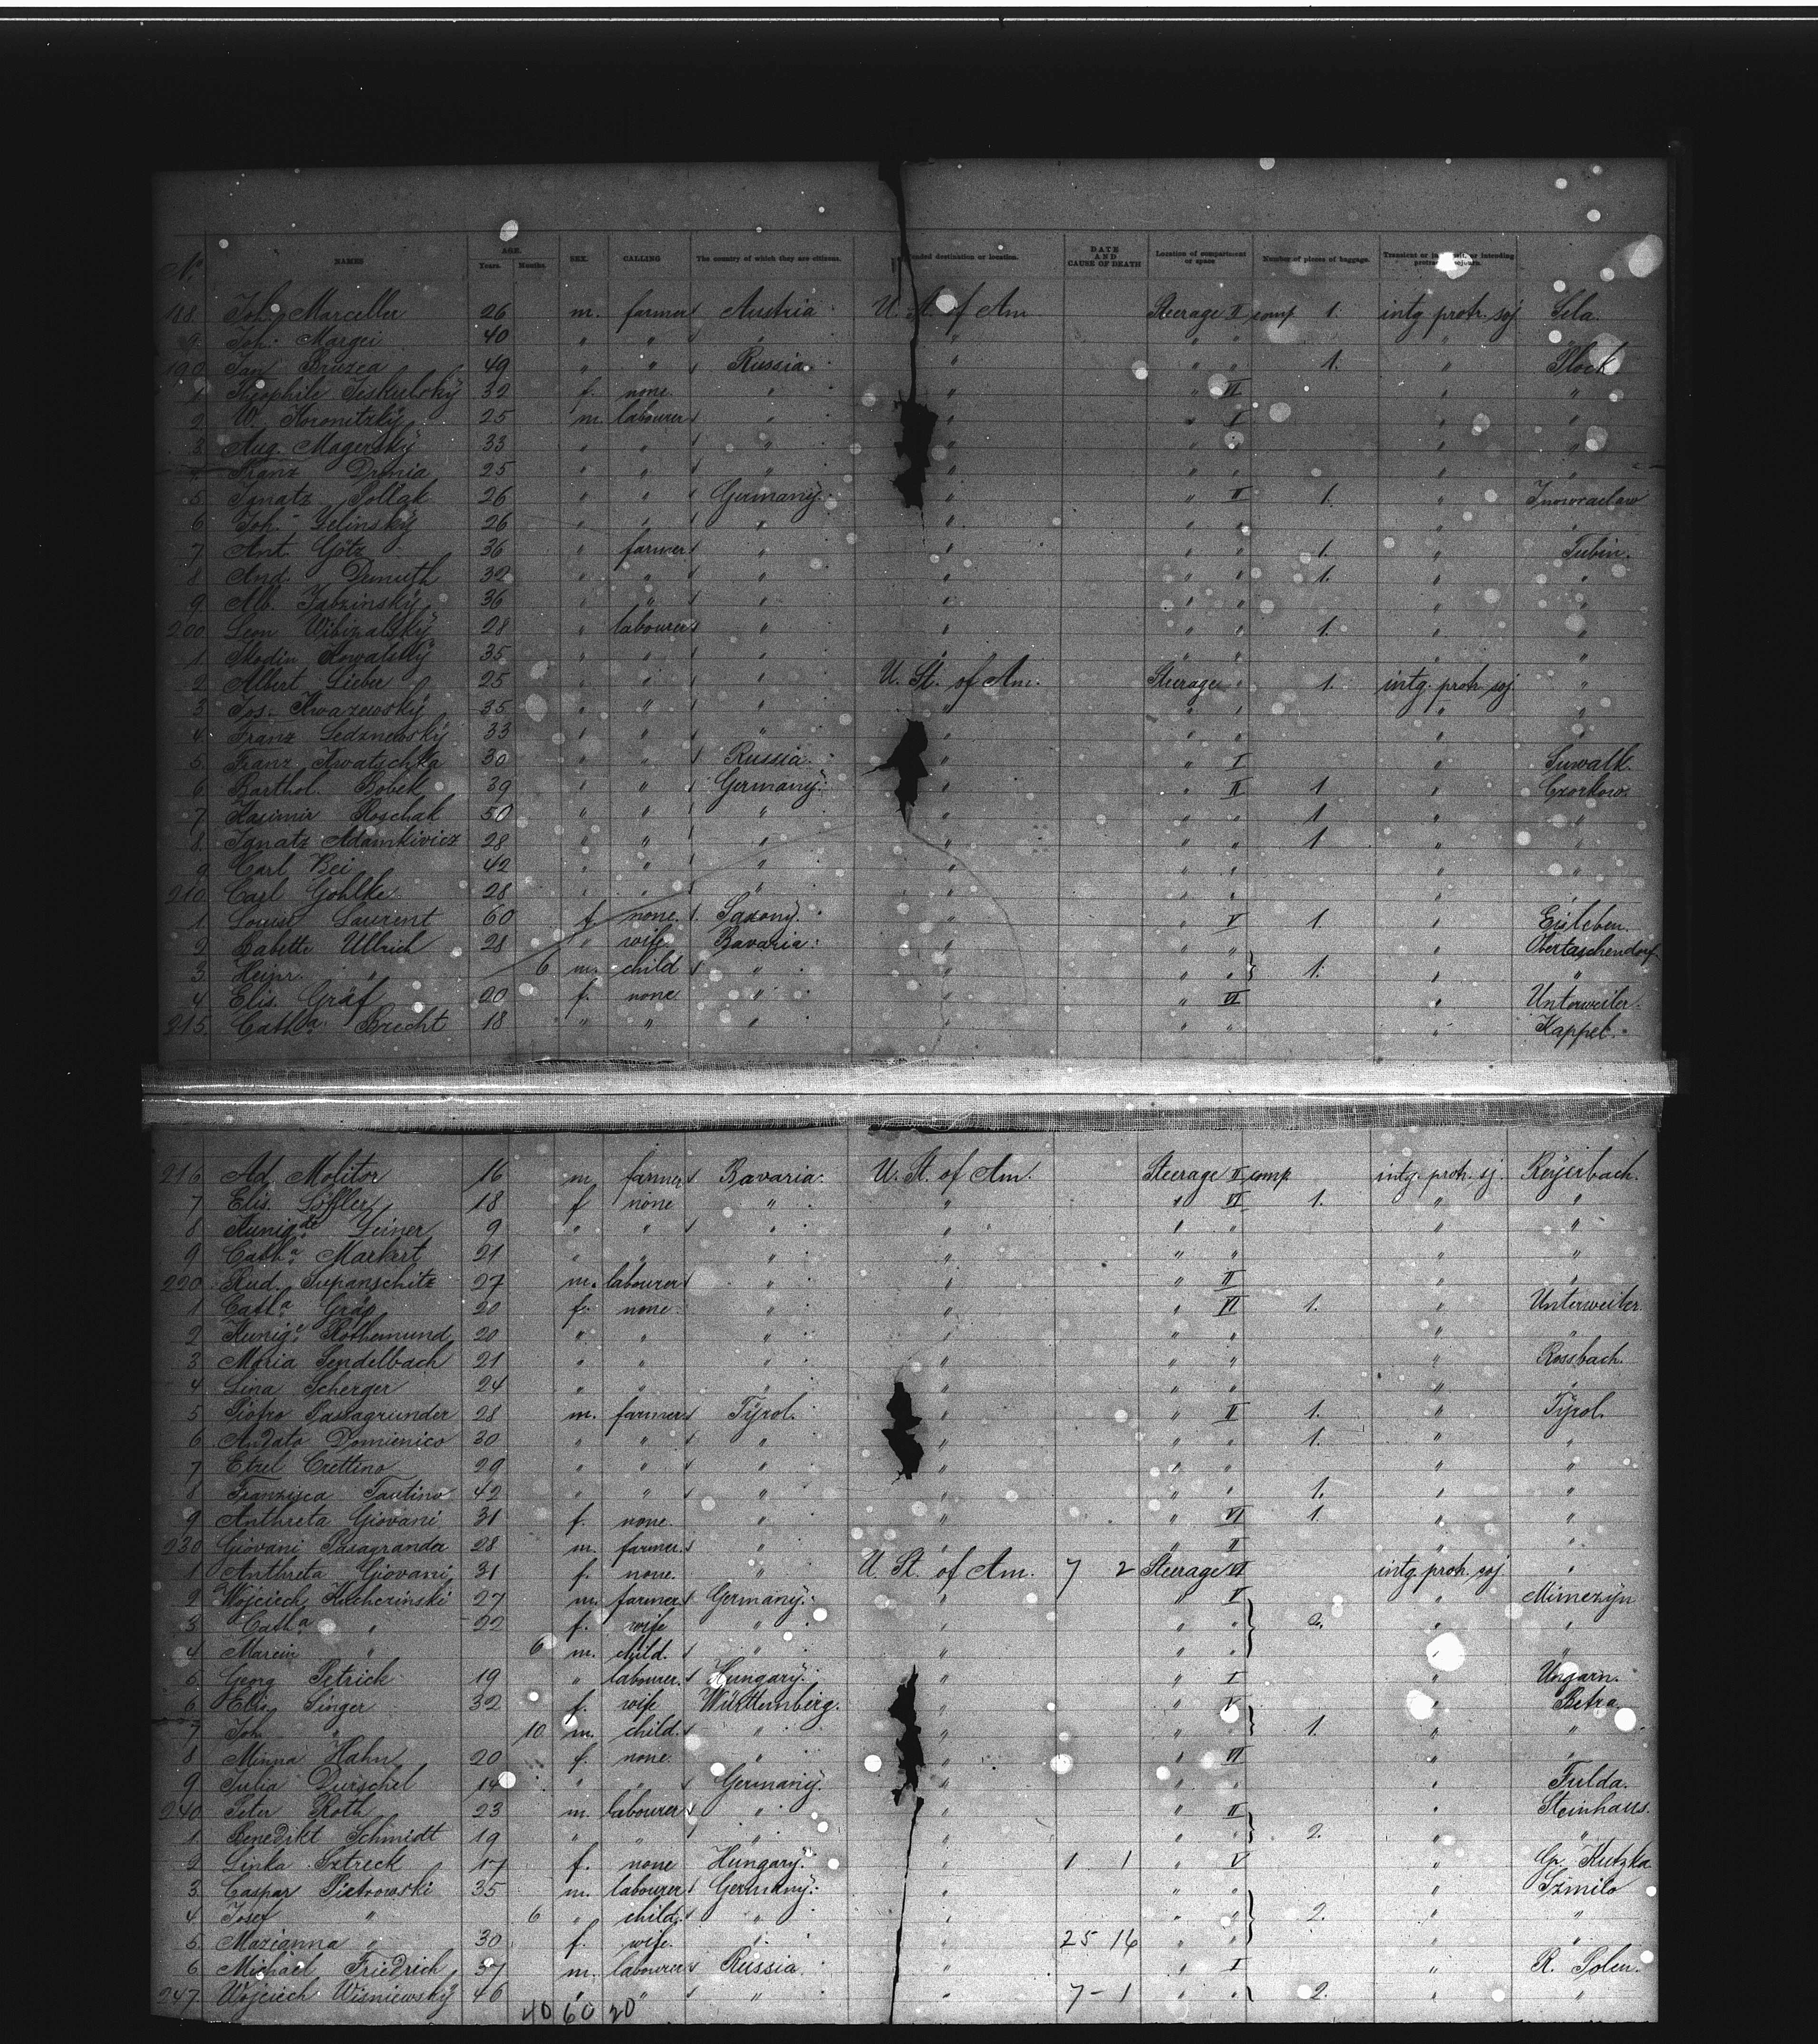 No NAMES AGE. Years. Months. SEX. CALLING The country of which they are citizens. Intended destination or location. DATE AND CAUSE OF DEATH Location of compartment or space Number of pieces of baggage. Transient or in transit, or intending protracted sojourn.
188 Joh. Marceller 26 m. farmer Austria U. St. of Am. Steerage II comp 1. intg. protr. soj. Sela.
9 Joh. Margei 40 " " " " " " " "
190 Jan Bruzea 49 " " Russia. " " " 1. " Plock
1 Theophile Jeskulsky 32 f. none " " " VI " "
2 W. Koronitzky 25 m. labourer " " " I " "
3 Aug. Magersky 33 " " " " " " " "
4 Franz Dronia 25 " " " " " " " "
5 Ignatz Pollak 26 " " Germany. " " II 1. " Inowraclaw
6 Joh. Zelinsky 26 " " " " " " " "
7 Ant. Götz 36 " farmer " " " " 1. " Tubin.
8 And. Demuth 32 " " " " " " 1. " "
9 Alb. Jabzinsky 36 " " " " " " " "
200 Leon Wibizalsky 28 " labourer " " " " 1. " "
1 Modin Kowalsky 35 " " " " " " " "
2 Albert Lieber 25 " " " U. St. of Am. Steerage " 1. intg. protr. soj. "
3 Jos. Kwazewsky 35 " " " " " " " "
4 Franz Ledznewsky 33 " " " " " " " "
5 Franz Kwatschka 30 " " Russia. " " I " Suwalk.
6 Barthol. Bobek 39 " " Germany. " " II 1 " Czorkow.
7 Kasimir Roschak 50 " " " " " " 1 " "
8 Ignatz Adamkivicz 28 " " " " " " 1 " "
9 Carl Bei 42 " " " " " " " "
210 Carl Gohlke 28 " " " " " " " "
1 Louise Laurent 60 f. none. Saxony. " " V 1. " Eisleben.
2 Babette Ullrich 28 " wife Bavaria. " " " " Obertaschendorf
3 Heinr. " 6 m. child " " " " 1. " "
4 Elis. Gräf 20 f. none " " " VI " Unterweiler.
215 Catha. Brecht 18 " " " " " " " Kappel.
216 Ad. Molitor 16 m. farmer Bavaria. U. St. of Am. Steerage II comp intg. protr. sj. Reyerbach.
7 Elis. Löffler 18 f none " " " VI 1. " "
8 Kunigde Leiner 9 " " " " " " " "
9 Catha. Markert 21 " " " " " " " "
220 Rud. Supanschitz 27 m. labourer " " " II " "
1 Catha. Gräp 20 f. none. " " " VI 1. " Unterweiler.
2 Kunige. Rothemund 20 " " " " " " " "
3 Maria Sendelbach 21 " " " " " " " Rossbach.
4 Lina Scherger 24 " " " " " " " "
5 Piotro Pasagrunder 28 m. farmer Tyrol. " " II 1. " Tyrol.
6 Andato Domienico 30 " " " " " " 1. " "
7 Etzel Crettino 29 " " " " " " " "
8 Franzisca Tautino 42 " " " " " " 1. " "
9 Anthreta Giovani 31 f. none. " " " VI 1. " "
230 Giovani Pasagranda 28 m. farmer. " " " II " "
1 Anthreta Giovani 31 f. none. " U. St. of Am. 7 2 Steerage VI intg. protr. soj. "
2 Wojciech Kucherinski 27 m. farmer Germany. " " V " Mimczyn
3 Catha " 22 f. wife " " " " 2. " "
4 Marcin " 6 m. child. " " " " " "
5 Georg Petrick 19 " labourer. Hungary. " " I " Ungarn.
6 Elis. Singer 32 f. wife Württemberg. " " V " Betra
7 Joh. " 10 m. child. " " " " 1. " "
8 Minna Hahn 20 f. none. " " " VI " "
9 Julia Durschel 14 " " Germany. " " " " Fulda.
240 Peter Roth 23 m. labourer " " " II " Steinhaus.
1 Benedikt Schmidt 19 " " " " " " 2. " "
2 Linka Sztreck 17 f. none Hungary. " 1 1 " V " Gr. Kutzka
3 Caspar Pietrowski 35 m. labourer Germany. " " " " Szmilo
4 Josef " 6 " child. " " " " 2. " "
5 Marianna " 30 f. wife. " " 25 16 " " " "
6 Michael Friedrich 37 m. labourer Russia " " I " R. Polen.
247 Wojciech Wisniewsky 46 " " " " 7-1 " " 2. " "
40 60 20